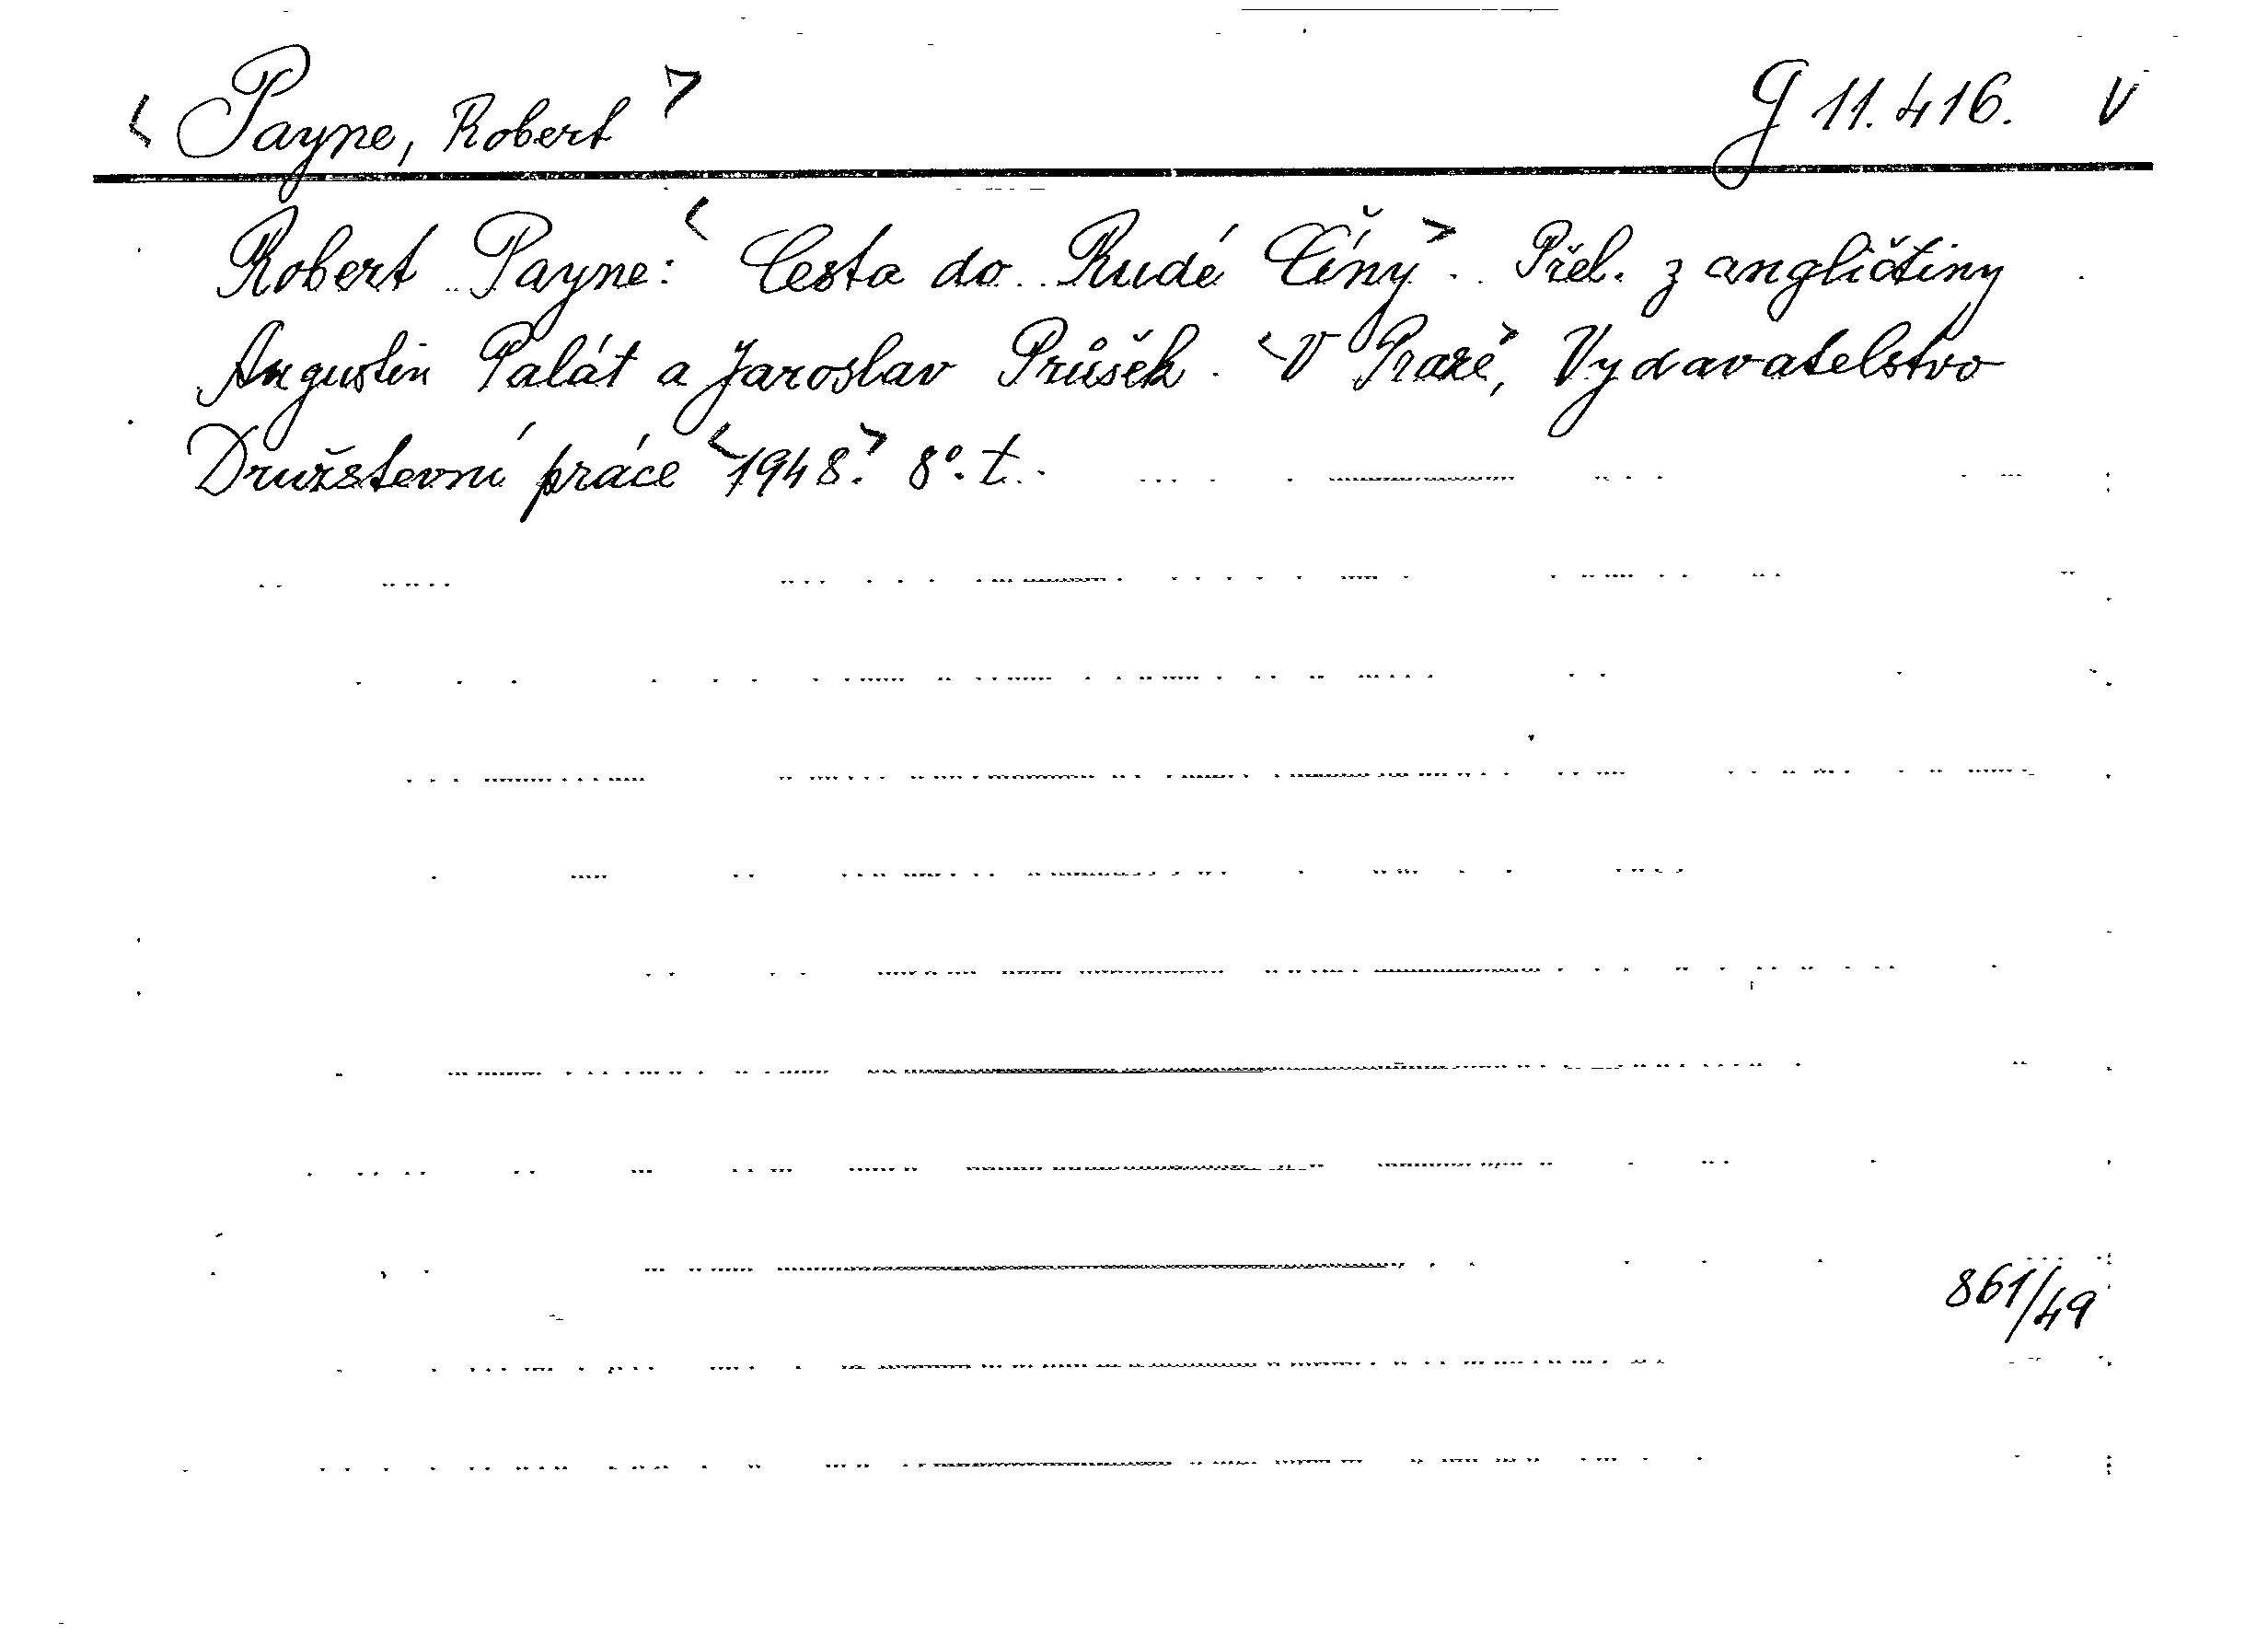 < Payne, Robert > G 11.416. V
Robert Payne: < Cesta do Rudé Číny >. Přel. z angličtiny
Augustin Palát a Jaroslav Průšek. < V Praze >, Vydavatelstvo
Družstevní práce < 1948. > 8°. t.
861/49